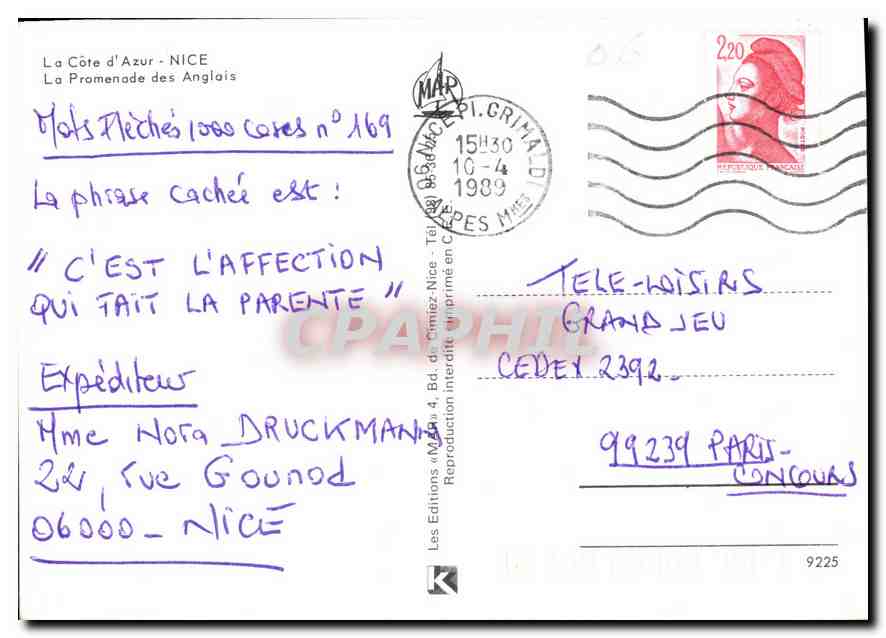 La Côte d'Azur - NICE
La Promenade des Anglais
Mots Fléchés 1000 cases n° 169
La phrase cachée est :
" C'EST L'AFFECTION
QUI FAIT LA PARENTÉ "
Expéditeur
Mme Nora DRUCKMANN
22, rue Gounod
06000 - NICE
MAR
Les Editions «MAR» 4, Bd. de Cimiez-Nice - Tél. (93)
Reproduction interdite imprimé en C.E.E.
06 NICE PL. GRIMALDI
15H30
10-4
1989
ALPES Mmes
2,20
REPUBLIQUE FRANÇAISE
TELE-LOISIRS
GRAND JEU
CEDEX 2392-
99239 PARIS-
CONCOURS
K
9225
CPAPHIL